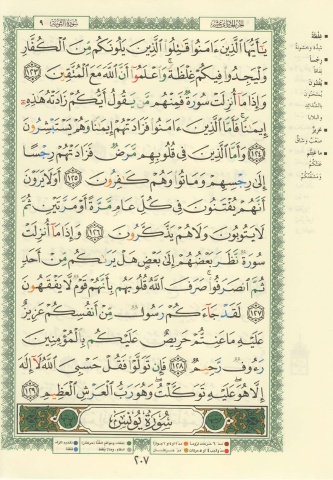 سورة التوبة ٩
يَـٰٓأَيُّهَا ٱلَّذِينَ ءَامَنُوا۟ قَـٰتِلُوا۟ ٱلَّذِينَ يَلُونَكُم مِّنَ ٱلْكُفَّارِ
وَلْيَجِدُوا۟ فِيكُمْ غِلْظَةً ۚ وَٱعْلَمُوٓا۟ أَنَّ ٱللَّهَ مَعَ ٱلْمُتَّقِينَ ﴿١٢٣﴾
وَإِذَا مَآ أُنزِلَتْ سُورَةٌ فَمِنْهُم مَّن يَقُولُ أَيُّكُمْ زَادَتْهُ هَـٰذِهِۦٓ
إِيمَـٰنًا ۚ فَأَمَّا ٱلَّذِينَ ءَامَنُوا۟ فَزَادَتْهُمْ إِيمَـٰنًا وَهُمْ يَسْتَبْشِرُونَ
﴿١٢٤﴾ وَأَمَّا ٱلَّذِينَ فِى قُلُوبِهِم مَّرَضٌ فَزَادَتْهُمْ رِجْسًا
إِلَىٰ رِجْسِهِمْ وَمَاتُوا۟ وَهُمْ كَـٰفِرُونَ ﴿١٢٥﴾ أَوَلَا يَرَوْنَ
أَنَّهُمْ يُفْتَنُونَ فِى كُلِّ عَامٍ مَّرَّةً أَوْ مَرَّتَيْنِ ثُمَّ
لَا يَتُوبُونَ وَلَا هُمْ يَذَّكَّرُونَ ﴿١٢٦﴾ وَإِذَا مَآ أُنزِلَتْ
سُورَةٌ نَّظَرَ بَعْضُهُمْ إِلَىٰ بَعْضٍ هَلْ يَرَىٰكُم مِّنْ أَحَدٍ
ثُمَّ ٱنصَرَفُوا۟ ۚ صَرَفَ ٱللَّهُ قُلُوبَهُم بِأَنَّهُمْ قَوْمٌ لَّا يَفْقَهُونَ
﴿١٢٧﴾ لَقَدْ جَآءَكُمْ رَسُولٌ مِّنْ أَنفُسِكُمْ عَزِيزٌ
عَلَيْهِ مَا عَنِتُّمْ حَرِيصٌ عَلَيْكُم بِٱلْمُؤْمِنِينَ
رَءُوفٌ رَّحِيمٌ ﴿١٢٨﴾ فَإِن تَوَلَّوْا۟ فَقُلْ حَسْبِىَ ٱللَّهُ لَآ إِلَـٰهَ
إِلَّا هُوَ ۖ عَلَيْهِ تَوَكَّلْتُ ۖ وَهُوَ رَبُّ ٱلْعَرْشِ ٱلْعَظِيمِ ﴿١٢٩﴾
سُورَةُ يُونُسَ
٢٠٧
غِلْظَةً
رِجْسًا
يُفْتَنُونَ
عَزِيزٌ
مَا عَنِتُّمْ